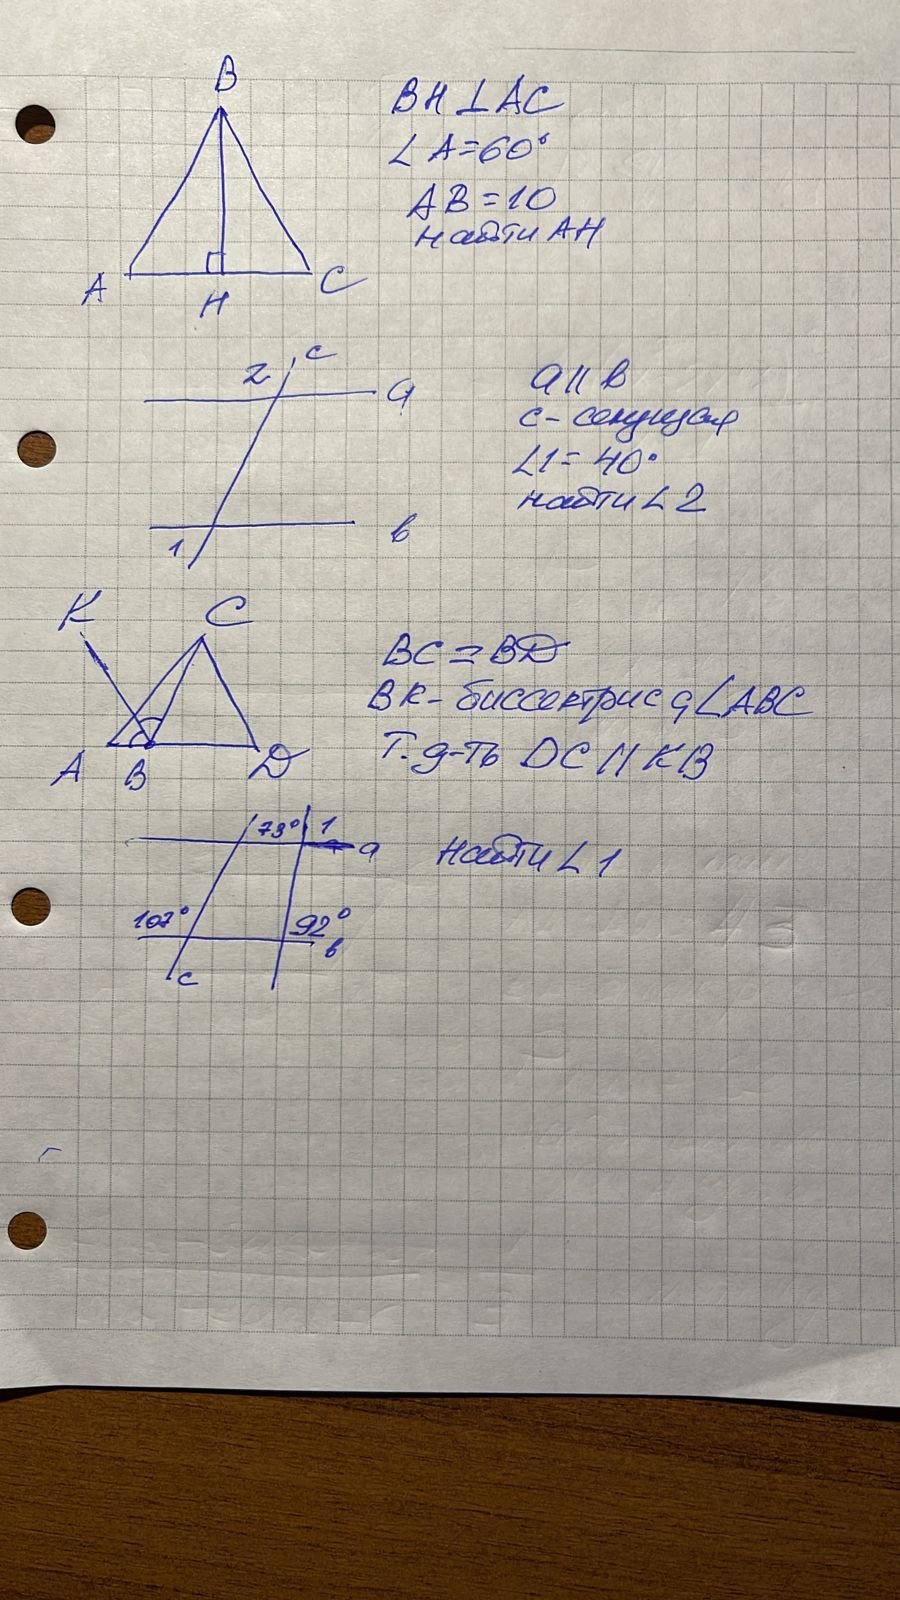 B
A
H
C
BH⊥AC
∠A=60°
AB=10
найти AH
2
c
a
1
b
a∥b
c-секущая
∠1=40°
найти ∠2
K
C
A
B
D
BC=BD
BK-биссектриса ∠ABC
Т.д-ть DC∥KB
73°
1
a
107°
92°
b
c
Найти ∠1